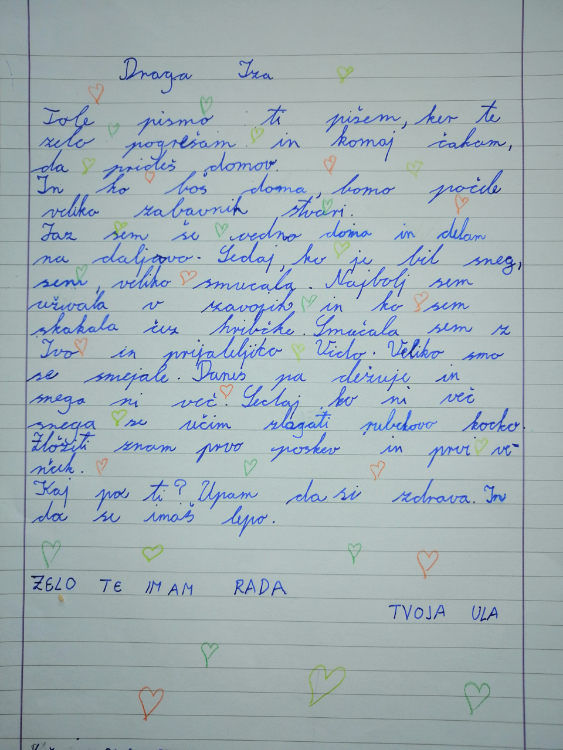 Draga Iza
Tole pismo ti pišem, ker te
zelo pogrešam in komaj čakam,
da prideš domov.
In ko boš doma, bomo počele
veliko zabavnih stvari.
Jaz sem še vedno doma in delam
na daljavo. Sedaj, ko je bil sneg,
sem veliko smučala. Najbolj sem
uživala v zavojih in ko sem
skakala čez hribčke. Smučala sem z
Ivo in prijateljico Vido. Veliko smo
se smejale. Danes pa dežuje in
snega ni več. Sedaj, ko ni več
snega se učim zlagati rubikovo kocko.
Zložiti znam prvo poskev in prvi vi-
nček.
Kaj pa ti? Upam da si zdrava. In
da se imaš lepo.
ZELO TE IMAM RADA
TVOJA ULA